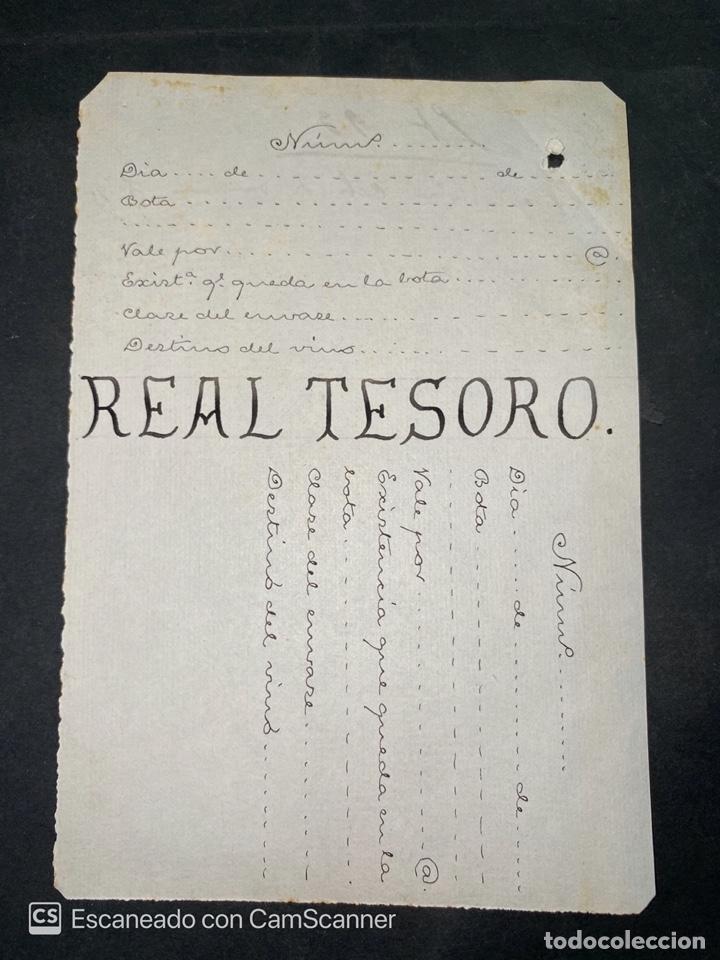 Núm°. . . . . . . . .
Dia . . . . de . . . . . . . . . . . . . . . . . de . . . . . . .
Bota . . . . . . . . . . . . . . . . . . . . . . . . . . . .
. . . . . . . . . . . . . . . . . . . . . . . . . . . . . . . .
Vale por . . . . . . . . . . . . . . . . . . . . . . . . @.
Exist.ª q.e queda en la bota . . . . . . . . . . . .
Clase del envase . . . . . . . . . . . . . . . . . . . .
Destino del vino . . . . . . . . . . . . . . . . . . .
REAL TESORO.
Núm°. . . . . . . . . .
Dia . . . . . de . . . . . . . . . . de . . . . .
Bota . . . . . . . . . . . . . . . . . . . .
. . . . . . . . . . . . . . . . . . . . . . . .
Vale por . . . . . . . . . . . . . . . . @.
Existencia que queda en la
bota . . . . . . . . . . . . . . . . . . . . .
Clase del envase . . . . . . . . . . .
Destino del vino . . . . . . . . . .
CS Escaneado con CamScanner
todocoleccion